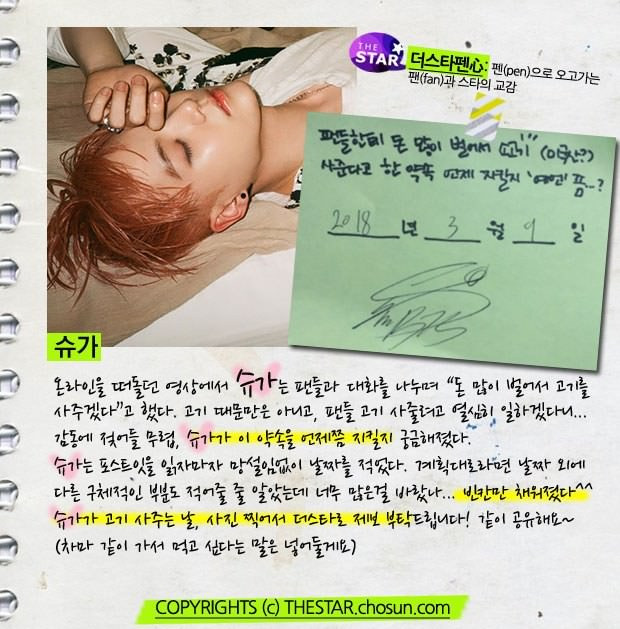 THE STAR
더스타펜心: 펜(pen)으로 오고가는
팬(fan)과 스타의 교감
팬들한테 돈 많이 벌어서 고기 (이국산?)
사준다고 한 약속 언제 지킬지 '여어' 픔..?
2018 년 3 월 9 일
슈가
온라인을 떠돌던 영상에서 슈가는 팬들과 대화를 나누며 “돈 많이 벌어서 고기를
사주겠다”고 했다. 고기 때문만은 아니고, 팬들 고기 사줄려고 열심히 일하겠다니...
감동에 젖어들 무렵, 슈가가 이 약속을 언제쯤 지킬지 궁금해졌다.
슈가는 포스트잇을 읽자마자 망설임없이 날짜를 적었다. 계획대로라면 날짜 외에
다른 구체적인 부분도 적어줄 줄 알았는데 너무 많은걸 바랐나... 빈칸만 채워졌다^^
슈가가 고기 사주는 날, 사진 찍어서 더스타로 제보 부탁드립니다! 같이 공유해요~
(차마 같이 가서 먹고 싶다는 말은 넣어둘게요)
COPYRIGHTS (c) THESTAR.chosun.com